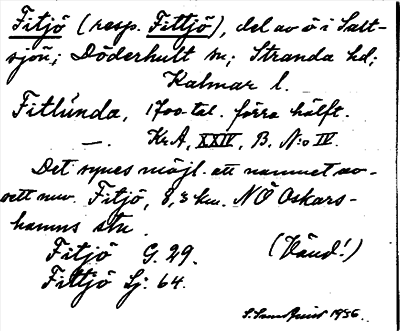 Fitjö (resp. Fittjö), del av ö i Salt-
sjön; Döderhult sn; Stranda hd;
Kalmar l.
Fitlunda, 1700-tal. förra hälft.
—. Kr.A, XXIV, B. N:o IV.
Det synes möjl. att namnet av-
sett nuv. Fitjö, 8,3 km. NÖ Oskars-
hamns stn.
Fitjö G. 29. (Vänd!)
Fittjö Sj. 64.
1936.